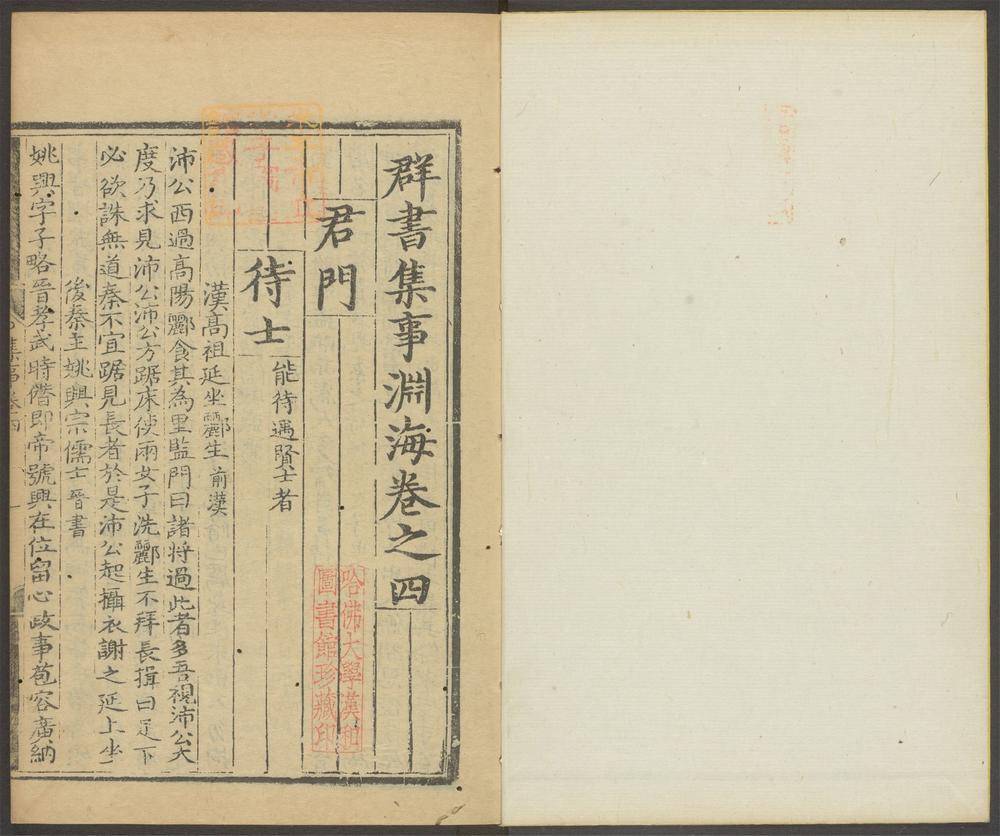 群書集事淵海卷之四
君門
待士
能待遇賢士者
漢高祖延坐酈生 前漢
沛公西過高陽酈食其為里監門曰諸將過此者多吾視沛公大
度乃求見沛公沛公方踞床使兩女子洗酈生不拜長揖曰足下
必欲誅無道秦不宜踞見長者於是沛公起攝衣謝之延上坐
後秦主姚興宗儒士 晉書
姚興字子略晉孝武時僭即帝號興在位留心政事苞容廣納
哈佛大學漢和
圖書館珍藏印